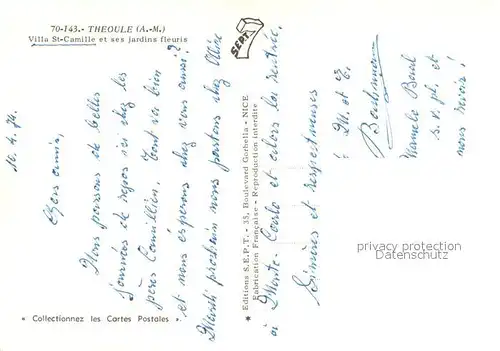 70-143.- THEOULE (A.-M.)
Villa St-Camille et ses jardins fleuris
SEPT
10. 4. 74.
Chers amis,
Nous passons de belles
journées de repos ici chez les
pères Camilliens. Tout va bien
et nous espérons chez vous aussi?
Mardi prochain nous partons chez
à Monte-Carlo et alors la rentrée.
Sincères et respectueuses
! M. et
s.v.pl. et
nous
* Editions S.E.P.T. - 33, Boulevard Gorbella - NICE
Fabrication Française - Reproduction interdite
« Collectionnez les Cartes Postales »
privacy protection
Datenschutz